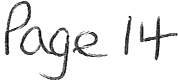 Page 14